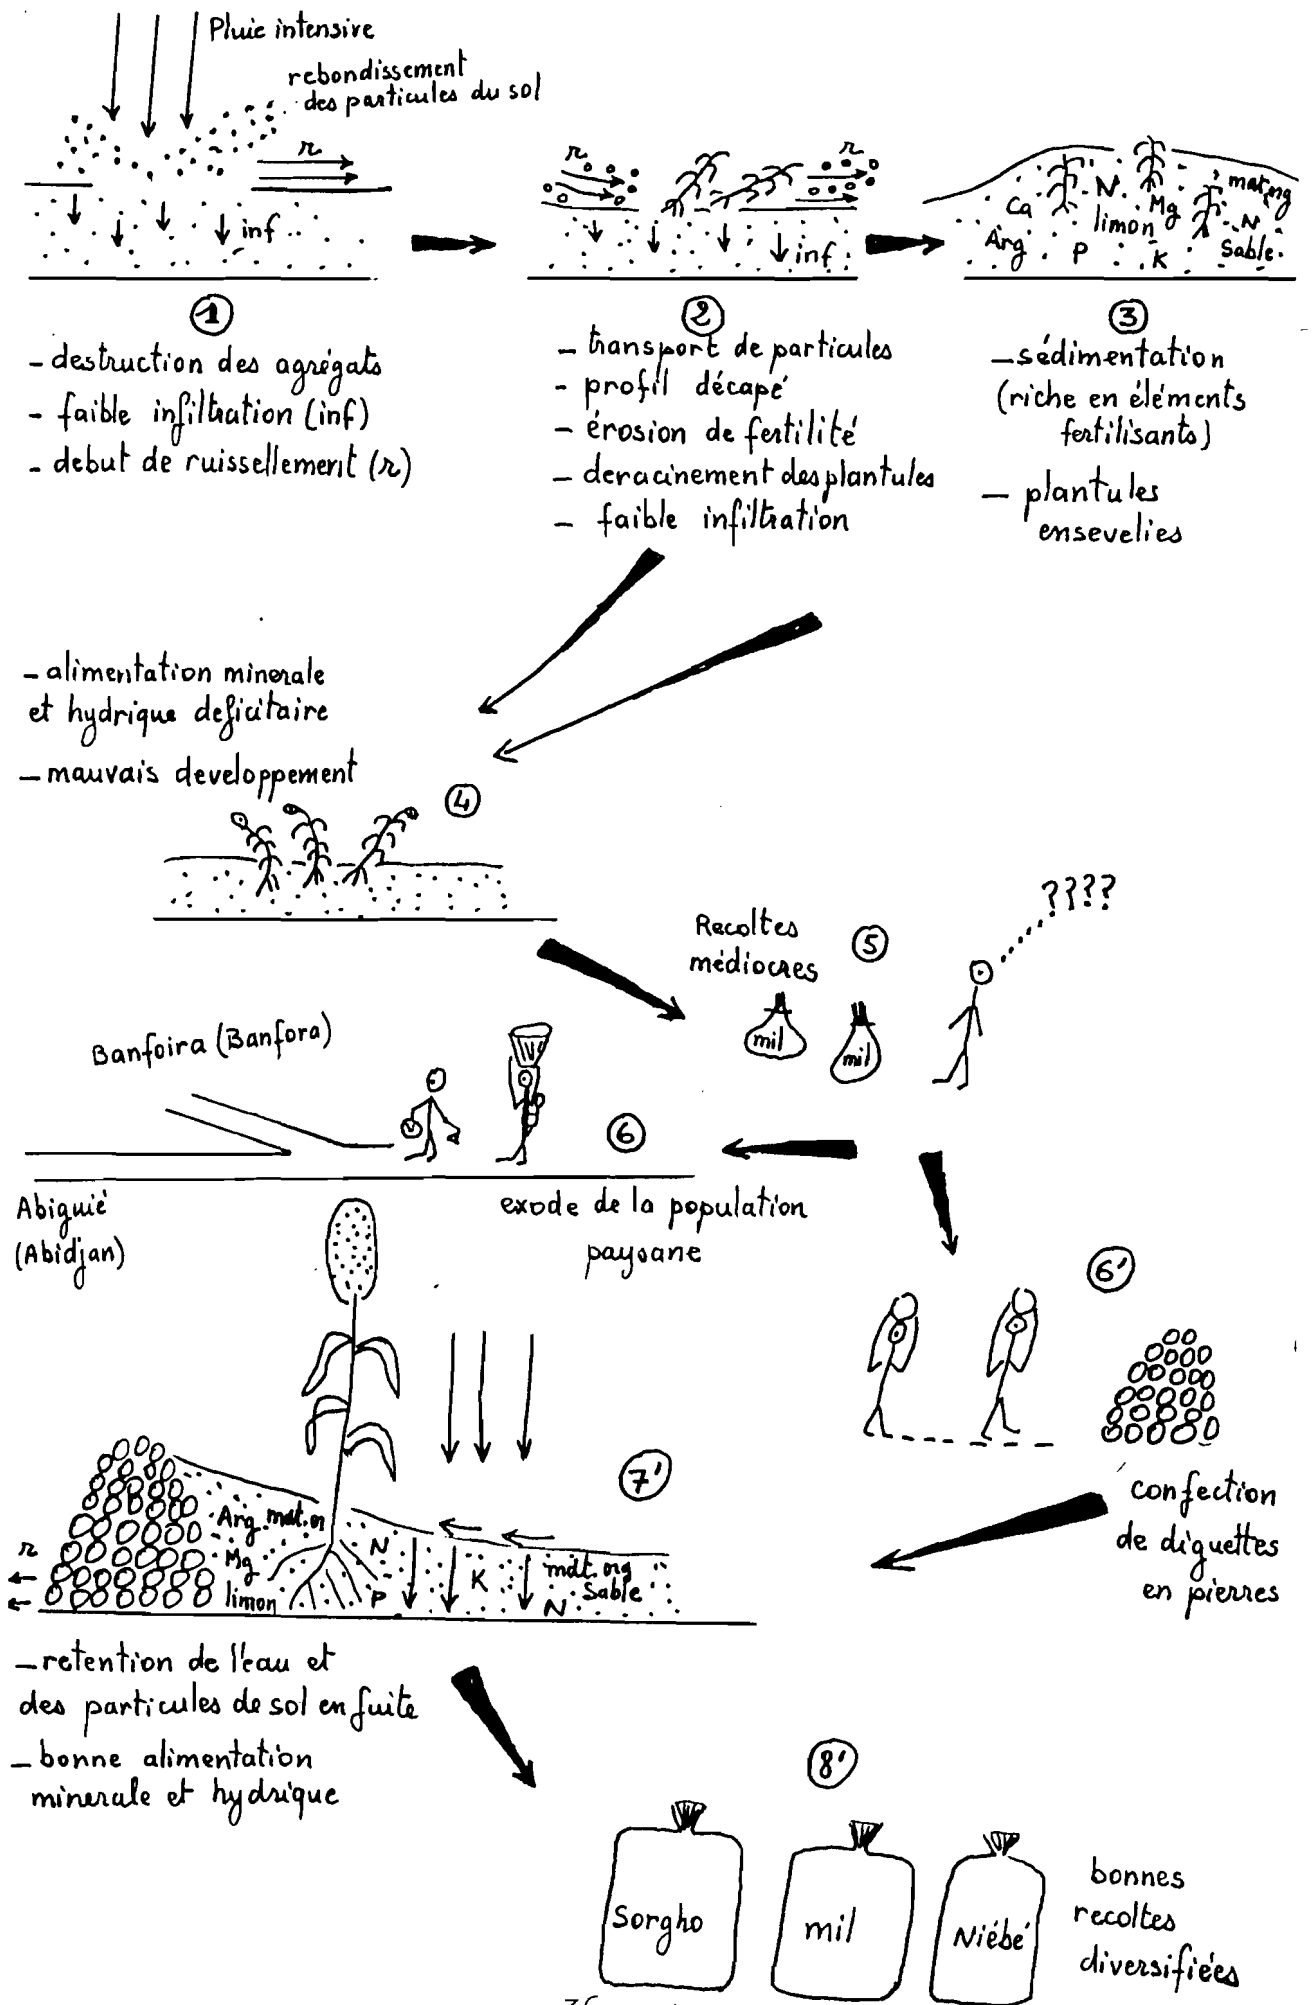 Pluie intensive
rebondissement
des particules du sol
r
inf
r
r
inf
mat. org
N
Mg
Ca
limon
N
Arg
P
K
Sable
1
- destruction des agrégats
- faible infiltration (inf)
- debut de ruissellement (r)
2
- transport de particules
- profil décapé
- érosion de fertilité
- deracinement des plantules
- faible infiltration
3
- sédimentation
(riche en éléments
fertilisants)
- plantules
ensevelies
- alimentation minerale
et hydrique deficitaire
- mauvais developpement
4
????
Recoltes
médiocres
5
mil
mil
Banfoira (Banfora)
6
Abiguié
(Abidjan)
exode de la population
paysane
6'
confection
de diguettes
en pierres
7'
Arg
mat. or
N
r
Mg
K
mat. org
Sable
limon
P
N
- retention de l'eau et
des particules de sol en fuite
- bonne alimentation
minerale et hydrique
8'
Sorgho
mil
Niébé
bonnes
recoltes
diversifiées